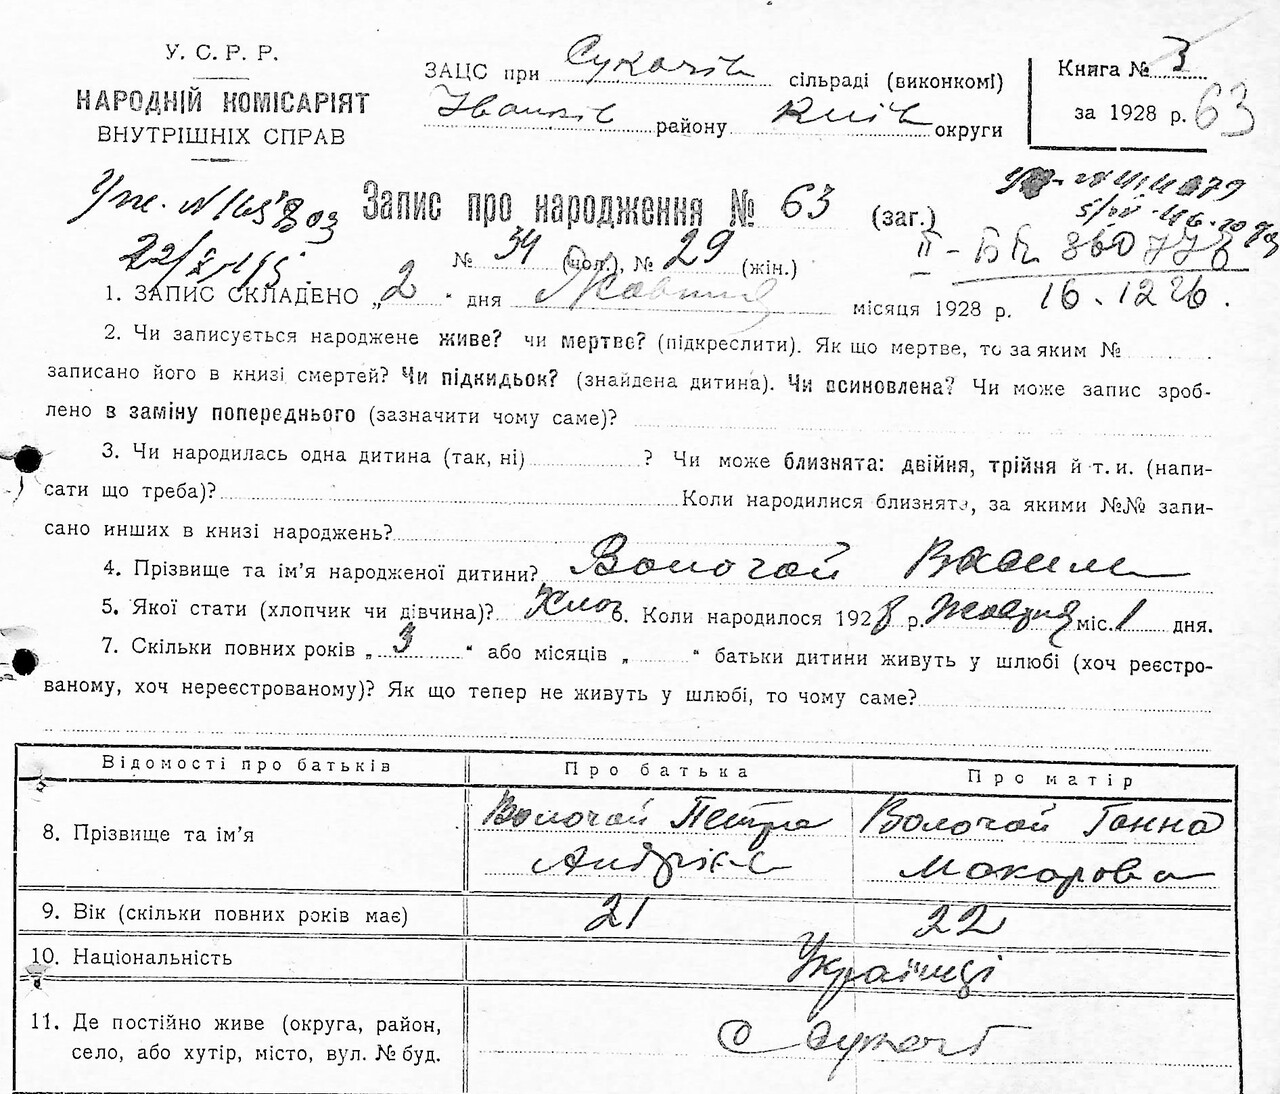 У. С. Р. Р.
НАРОДНІЙ КОМІСАРІЯТ
ВНУТРІШНІХ СПРАВ
ЗАЦС при Сукачів сільраді (виконкомі)
Іванків району Київ округи
Книга № 3
за 1928 р. 63
Запис про народження № 63 (заг.)
№ 34 (чол.), № 29 (жін.)
22/X
II - БК 360778
16.12
1. ЗАПИС СКЛАДЕНО „2“ дня Жовтня місяця 1928 р.
2. Чи записується народжене живе? чи мертве? (підкреслити). Як що мертве, то за яким №
записано його в книзі смертей? Чи підкидьок? (знайдена дитина). Чи всиновлена? Чи може запис зроб-
лено в заміну попереднього (зазначити чому саме)?
3. Чи народилась одна дитина (так, ні) ? Чи може близнята: двійня, трійня й т. и. (напи-
сати що треба)? Коли народилися близнята, за якими №№ запи-
сано инших в книзі народжень?
4. Прізвище та ім'я народженої дитини? Волочай Васил
5. Якої стати (хлопчик чи дівчина)? Хлоп 6. Коли народилося 1928 р. Жовтня міс. 1 дня.
7. Скільки повних років „3“ або місяців „ “ батьки дитини живуть у шлюбі (хоч реєстро-
ваному, хоч нереєстрованому)? Як що тепер не живуть у шлюбі, то чому саме?
Відомості про батьків Про батька Про матір
8. Прізвище та ім'я Волочай Петро Волочай Ганна
Андрієв Макаровна
9. Вік (скільки повних років має) 21 22
10. Національність Українці
11. Де постійно живе (округа, район,
село, або хутір, місто, вул. № буд.
С Сукачі